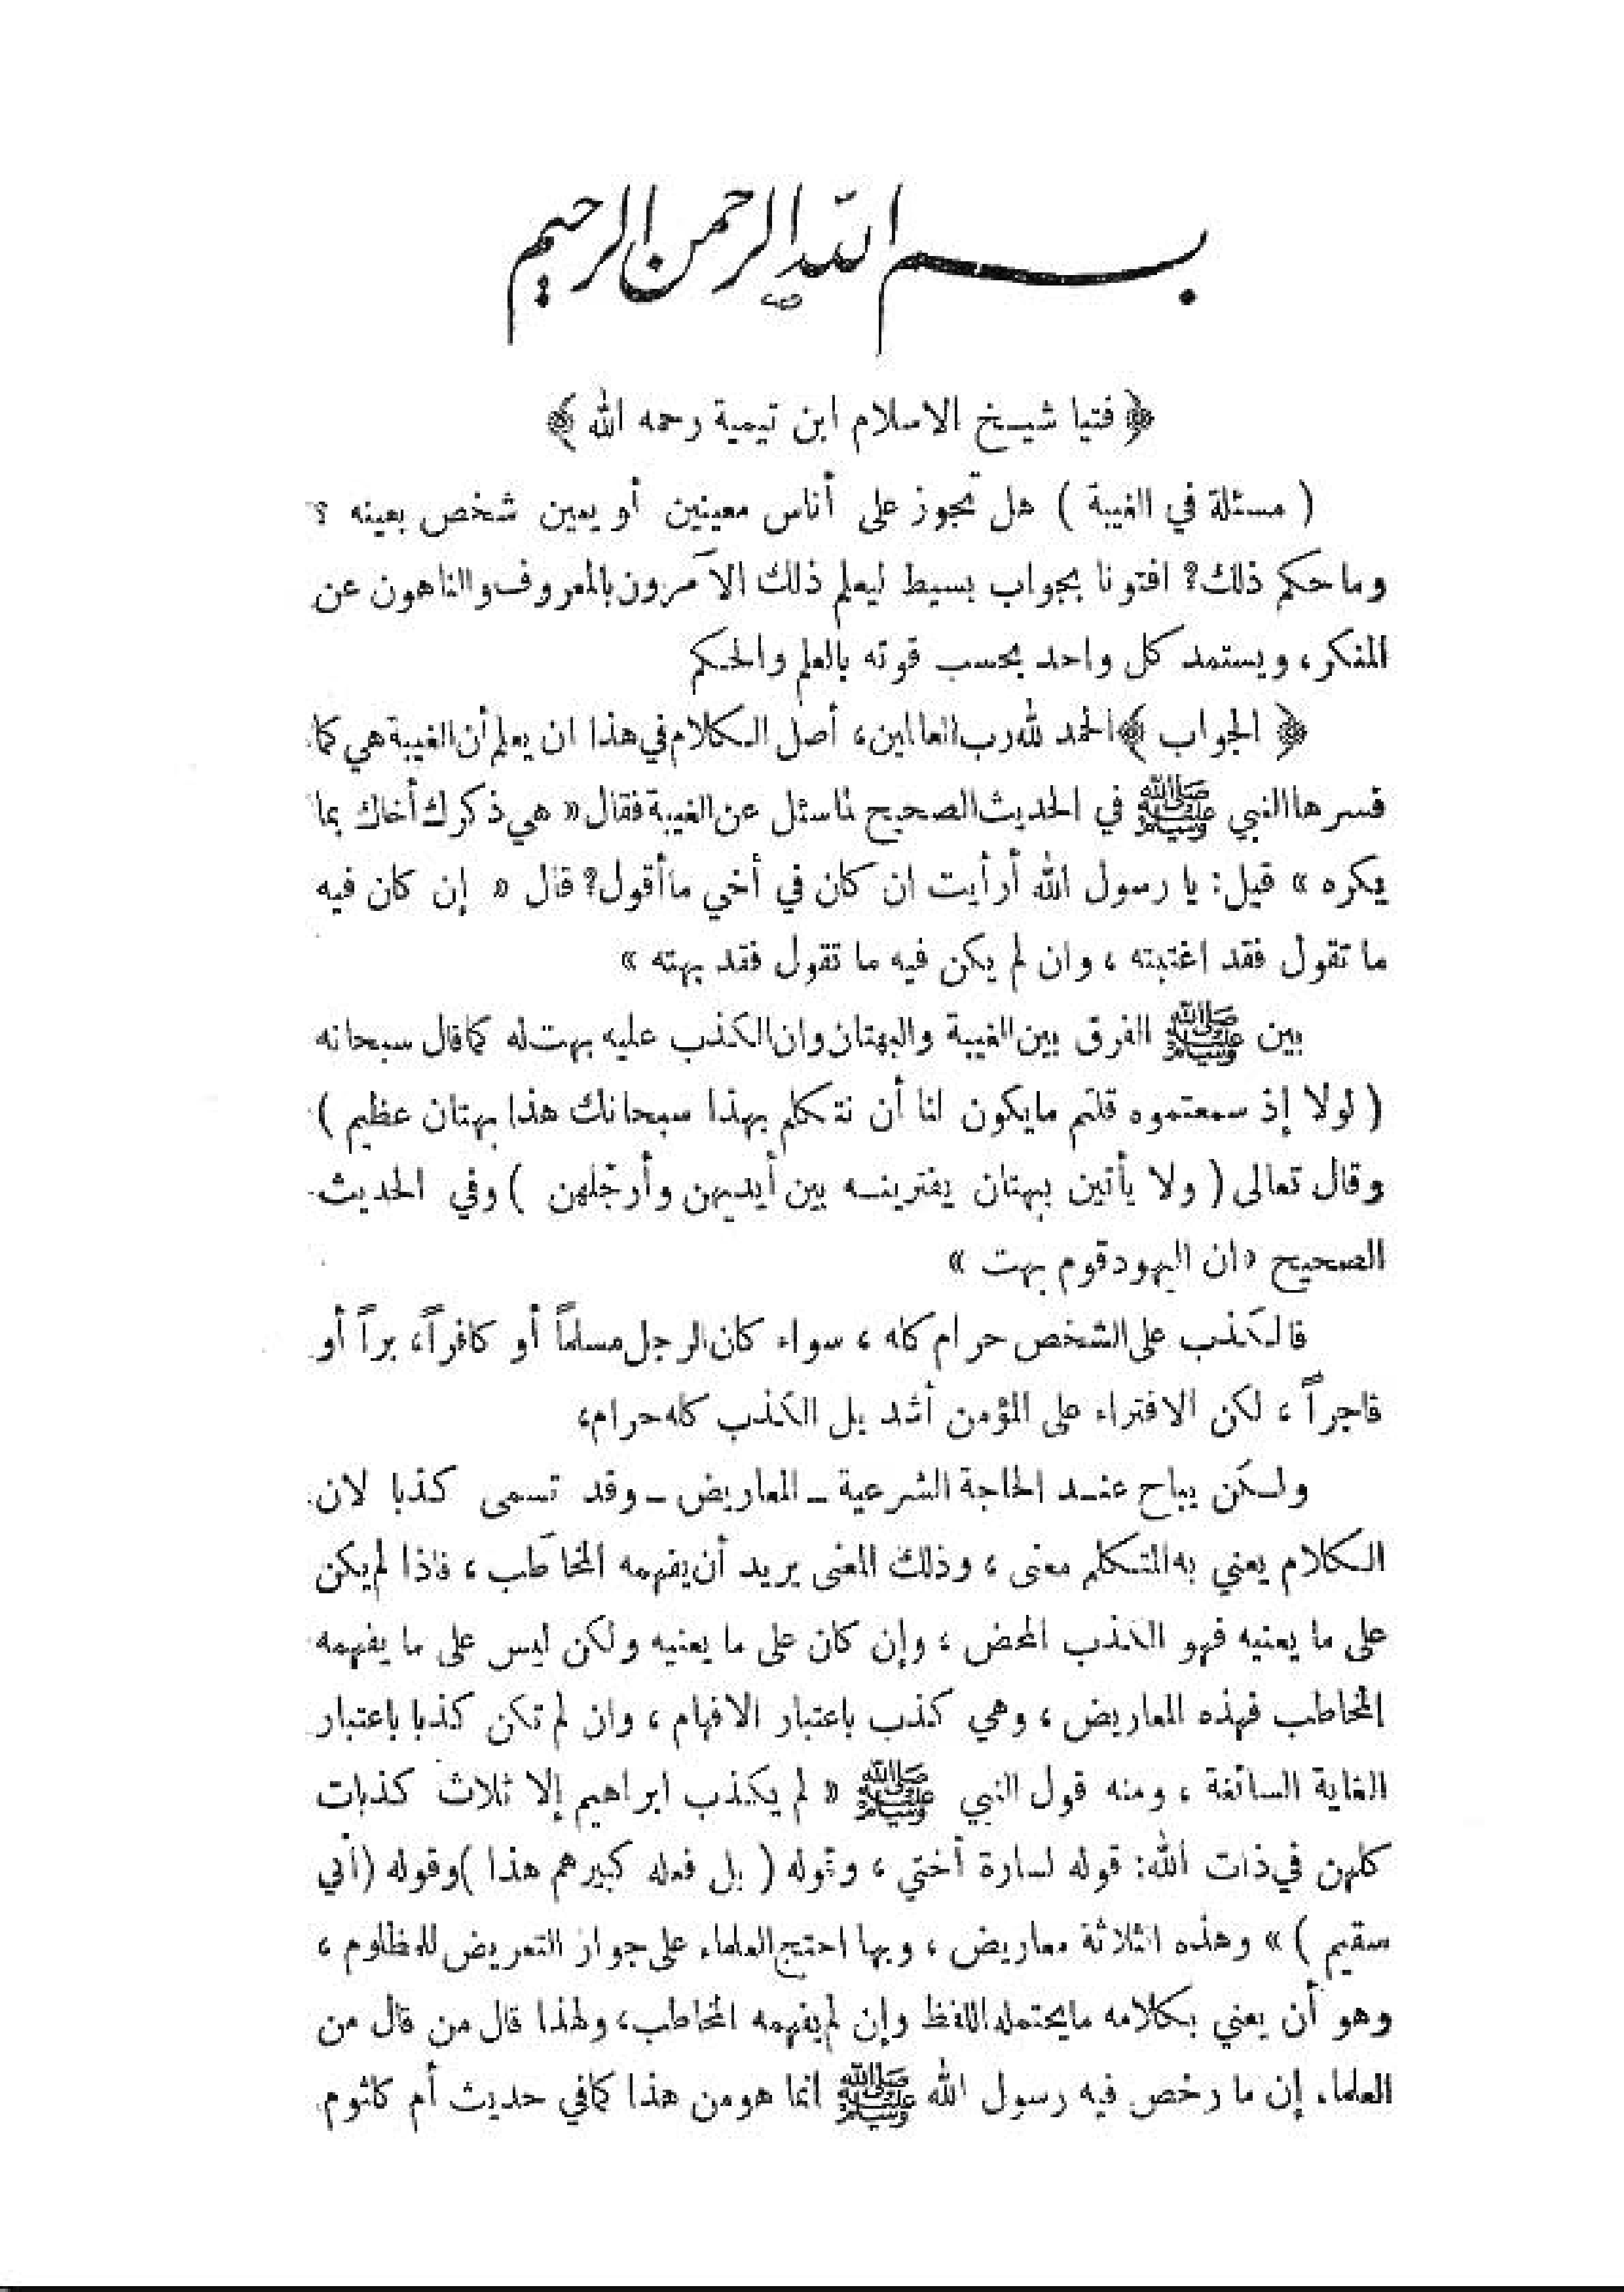 بسم الله الرحمن الرحيم
﴿ فتيا شيخ الاسلام ابن تيمية رحمه الله ﴾
( مسئلة في الغيبة ) هل تجوز على أناس معينين أو يعين شخص بعينه ؟
وما حكم ذلك؟ افتونا بجواب بسيط ليعلم ذلك الآمرون بالمعروف والناهون عن
المنكر، ويستمد كل واحد بحسب قوته بالعلم والحكم
﴿ الجواب ﴾ الحمد لله رب العالمين، أصل الكلام في هذا ان يعلم أن الغيبة هي كما
فسرها النبي ﷺ في الحديث الصحيح لما سئل عن الغيبة فقال « هي ذكرك أخاك بما
يكره » قيل: يا رسول الله أرأيت ان كان في أخي ما أقول؟ قال « إن كان فيه
ما تقول فقد اغتبته ، وان لم يكن فيه ما تقول فقد بهته »
بين ﷺ الفرق بين الغيبة والبهتان وان الكذب عليه بهت له كما قال سبحانه
( لولا إذ سمعتموه قلتم ما يكون لنا أن نتكلم بهذا سبحانك هذا بهتان عظيم )
وقال تعالى ( ولا يأتين ببهتان يفترينه بين أيديهن وأرجلهن ) وفي الحديث
الصحيح « ان اليهود قوم بهت »
فالكذب على الشخص حرام كله ، سواء كان الرجل مسلماً أو كافراً، براً أو
فاجراً ، لكن الافتراء على المؤمن أشد بل الكذب كله حرام،
ولكن يباح عند الحاجة الشرعية ـ المعاريض ـ وقد تسمى كذبا لان
الكلام يعني به المتكلم معنى ، وذلك المعنى يريد أن يفهمه المخاطَب ، فاذا لم يكن
على ما يعنيه فهو الكذب المحض ، وإن كان على ما يعنيه ولكن ليس على ما يفهمه
المخاطب فهذه المعاريض ، وهي كذب باعتبار الافهام ، وان لم تكن كذبا باعتبار
الغاية السائغة ، ومنه قول النبي ﷺ « لم يكذب ابراهيم إلا ثلاث كذبات
كلهن في ذات الله: قوله لسارة أختي ، وقوله ( بل فعله كبيرهم هذا ) وقوله ( أني
سقيم ) » وهذه الثلاثة معاريض ، وبها احتج العلماء على جواز التعريض للمظلوم ،
وهو أن يعني بكلامه ما يحتمله اللفظ وإن لم يفهمه المخاطب، ولهذا قال من قال من
العلماء إن ما رخص فيه رسول الله ﷺ انما هو من هذا كما في حديث أم كلثوم